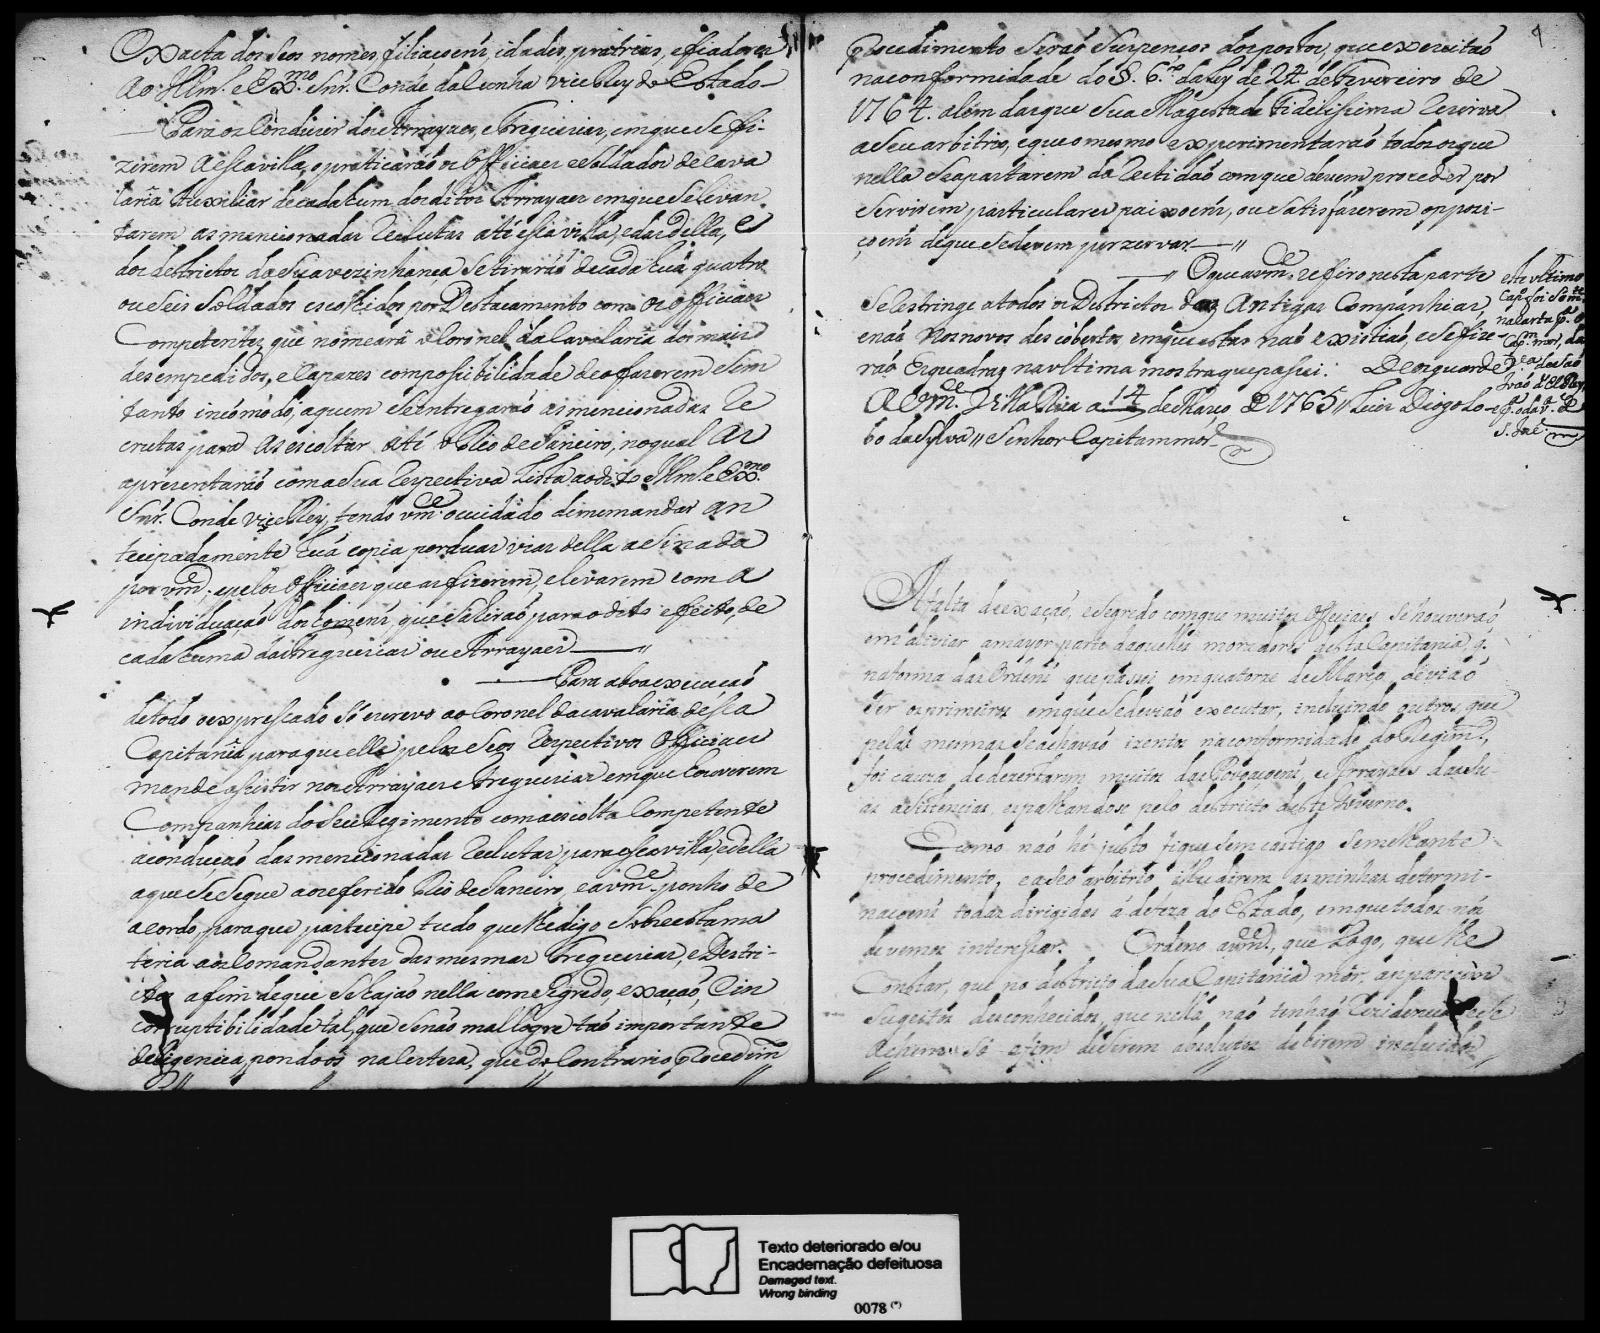 Exacta dos Seos nomes, filiaçoens, idades, patrias, e fiadores
Ao Illm.º e Exm.mo Snr. Conde da Cunha Vice Rey do Estado
Para os Conduzir dos Arrayaes, e Freguezias, em que se fi-
zerem a essa villa, o praticarão os Officiaes e Soldados de Cava
laria Auxiliar de cada hum dos ditos Arrayaes em que se levan
tarem as mencionadas Reclutas até essa villa, e das della, e
dos destrictos da Sua vezinhança se tirarão de cada huã quatro
ou Seis Soldados escolhidos por Destacamento com os Officiaes
Competentes, que nomeará o Coronel da Cavalaria dos mais
desempedidos, e Capazes com possibilidade de o fazerem e sem
tanto incómodo, a quem se entregarão as mencionadas Re
crutas para as escoltar até o Rio de Janeiro, no qual as
apresentarão com a Sua Respectiva Lista ao dito Illm.º e Exm.mo
Snr. Conde Vice Rey, tendo vm.ce o cuidado de me mandar an
tecipadamente huã copia por duas vias della asinada
por vm.ce, e pelos Officiaes que as fizerem, e levarem com a
individuação dos homens, que Sahirão para o dito effeito, de
cada huma das freguezias ou Arrayaes
Para a boa execução
de todo o expressado só escrevo ao Coronel da cavalaria dessa
Capitania para que elle pelos Seos Respectivos Officiaes
mande assistir nos Arrayaes e freguezias em que houverem
Companhias do Seu Regimento com a escolta Competente
a condução das mencionadas Reclutas para essa villa, e della
a que se segue ao referido Rio de Janeiro, e a vm.ce ponho de
acordo, para que participe tudo que lhe digo sobre esta ma
teria aos Comandantes das mesmas Freguezias, e Destri-
ctos a fim de que se hajão nella com segredo, exação, e in
corruptibilidade tál, que se não mallogre tão importante
deligencia, pondo os na certeza, que do Contrario procedim
procedimento serão Suspensos dos postos, que exercitão
na conformidade do §. 6.º da Ley de 24. de Fevereiro de
1764. além das que Sua Magestade Fidelissima Reserva
a Seu arbitrio, e que o mesmo experimentarão todos os que
nella Se apartarem da Rectidão com que devem proceder por
Servirem particulares paixoens, ou Satisfazerem opposi-
çoens de que se devem perzervar
O que a vm.ce refiro nesta parte
Se restringe a todos os Districtos das Antigas Companhias,
e nos Novos descobertos em que estas não existião, e se fize-
rão Esquadras na ultima mostra que passei. Deos guarde
A Vm.ce Villa Rica a 14 de Março de 1765 // Luis Diogo Lo-
bo da Sylva // Senhor Capitam mór
este ultimo
Cap.º foi som.te
na carta p.ª o
Cap.m mor, da
V.ª de São
João d'El Rey,
e p.ª o da v.ª de
S. José.
A falta de exação, e segredo com que muitos Officiaes Se houverão
em aliviar a mayor parte daquelles moradores desta Capitania, q.
na forma das Ordens que passei em quatorze de Março, devião
Ser os primeiros em que Se devião executar, incluindo outros, que
pelas mesmas Se achavão izentos na conformidade do Regim.to,
foi cauza de dezertarem muitos das Povoaçoens, e Arrayaes das Su-
as asistencias espalhandose pelo destricto deste Governo.
Como não hé justo fique sem castigo Semelhante
procedimento, e a Seo arbitrio illudirem as minhas determi-
naçoens todas dirigidas á defeza do Estado, em que todos nós
devemos interessar. Ordeno a vm.ce, que Logo, que lhe
Constar, que no destricto da Sua Capitania mór, aparecem
Sugeitos desconhecidos, que nella não tenhão Rezidencia
Achem Só a fim de Serem absolutos de Serem incluidos
Texto deteriorado e/ou
Encadernação defeituosa
Damaged text.
Wrong binding
0078 (*)